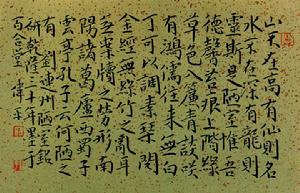 山不在高有仙則名
水不在深有龍則
靈斯是陋室惟吾
德馨苔痕上階綠
草色入簾青談笑
有鴻儒往來無白
丁可以調素琴閱
金經無絲竹之亂耳
無案牘之勞形南
陽諸葛廬西蜀子
雲亭孔子云何陋之
有 劉連州陋室銘
研乾隆三十年墨于
百合堂